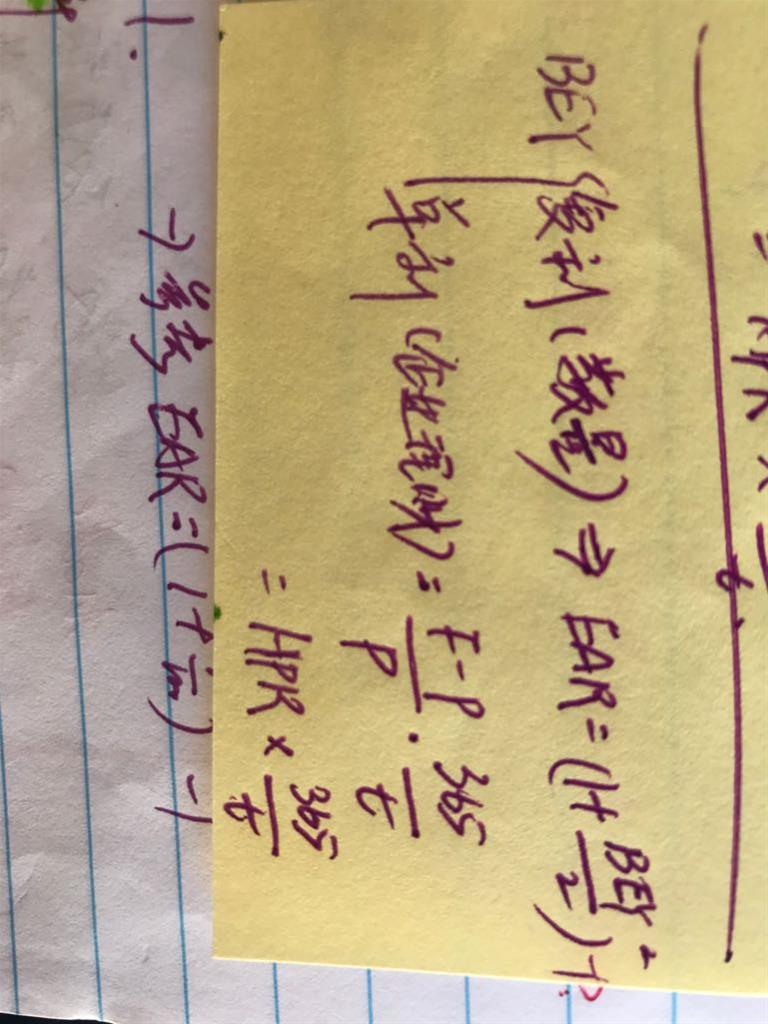 = HPR ×
BEY { 复利 (数量) ⇒ EAR = (1 + BEY/2)² - 1
单利 (企业理财) = F-P/P · 365/t
= HPR × 365/t
1.
→ 参考 EAR = (1 + i/m) - 1